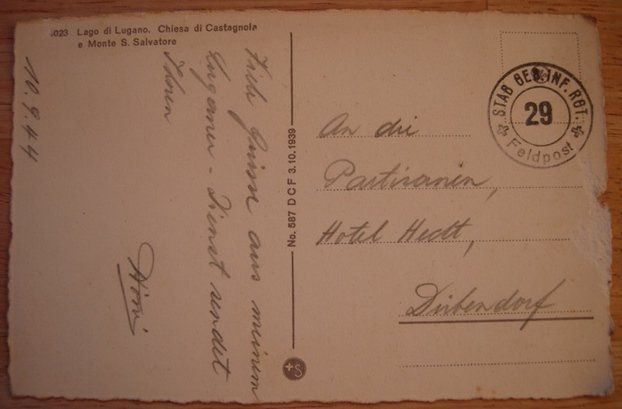 5023 Lago di Lugano. Chiesa di Castagnola
e Monte S. Salvatore
10.9.44
Viele Grüsse aus meinem
Luganer-Dienst sendet
No. 587 D C F 3.10.1939
An die
Partisanen,
Hotel Hecht,
Dübendorf
STAB GEB. INF. RGT.
29
Feldpost
+S